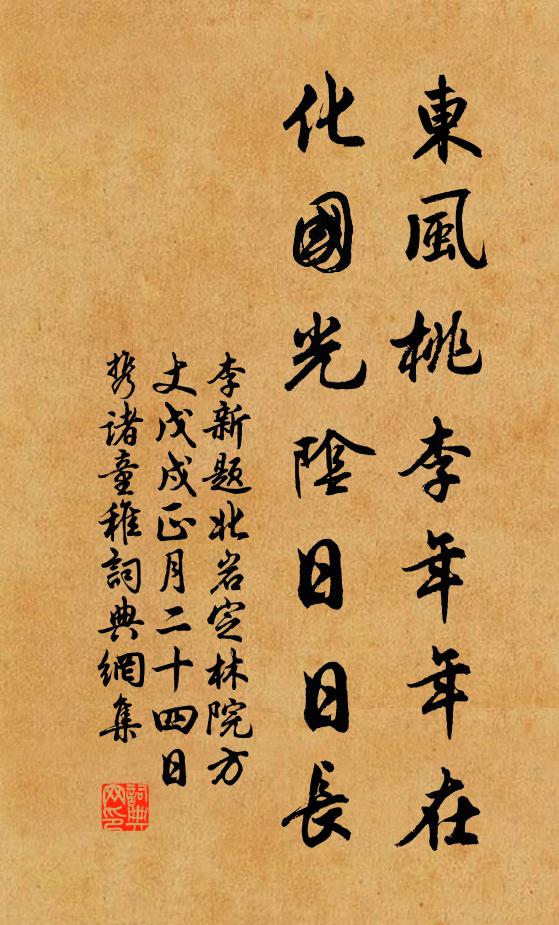 東風桃李年年在
化國光陰日日長
李新題北岩定林院方
丈戊戌正月二十四日
攜諸童稚詞典網集
詞典網印